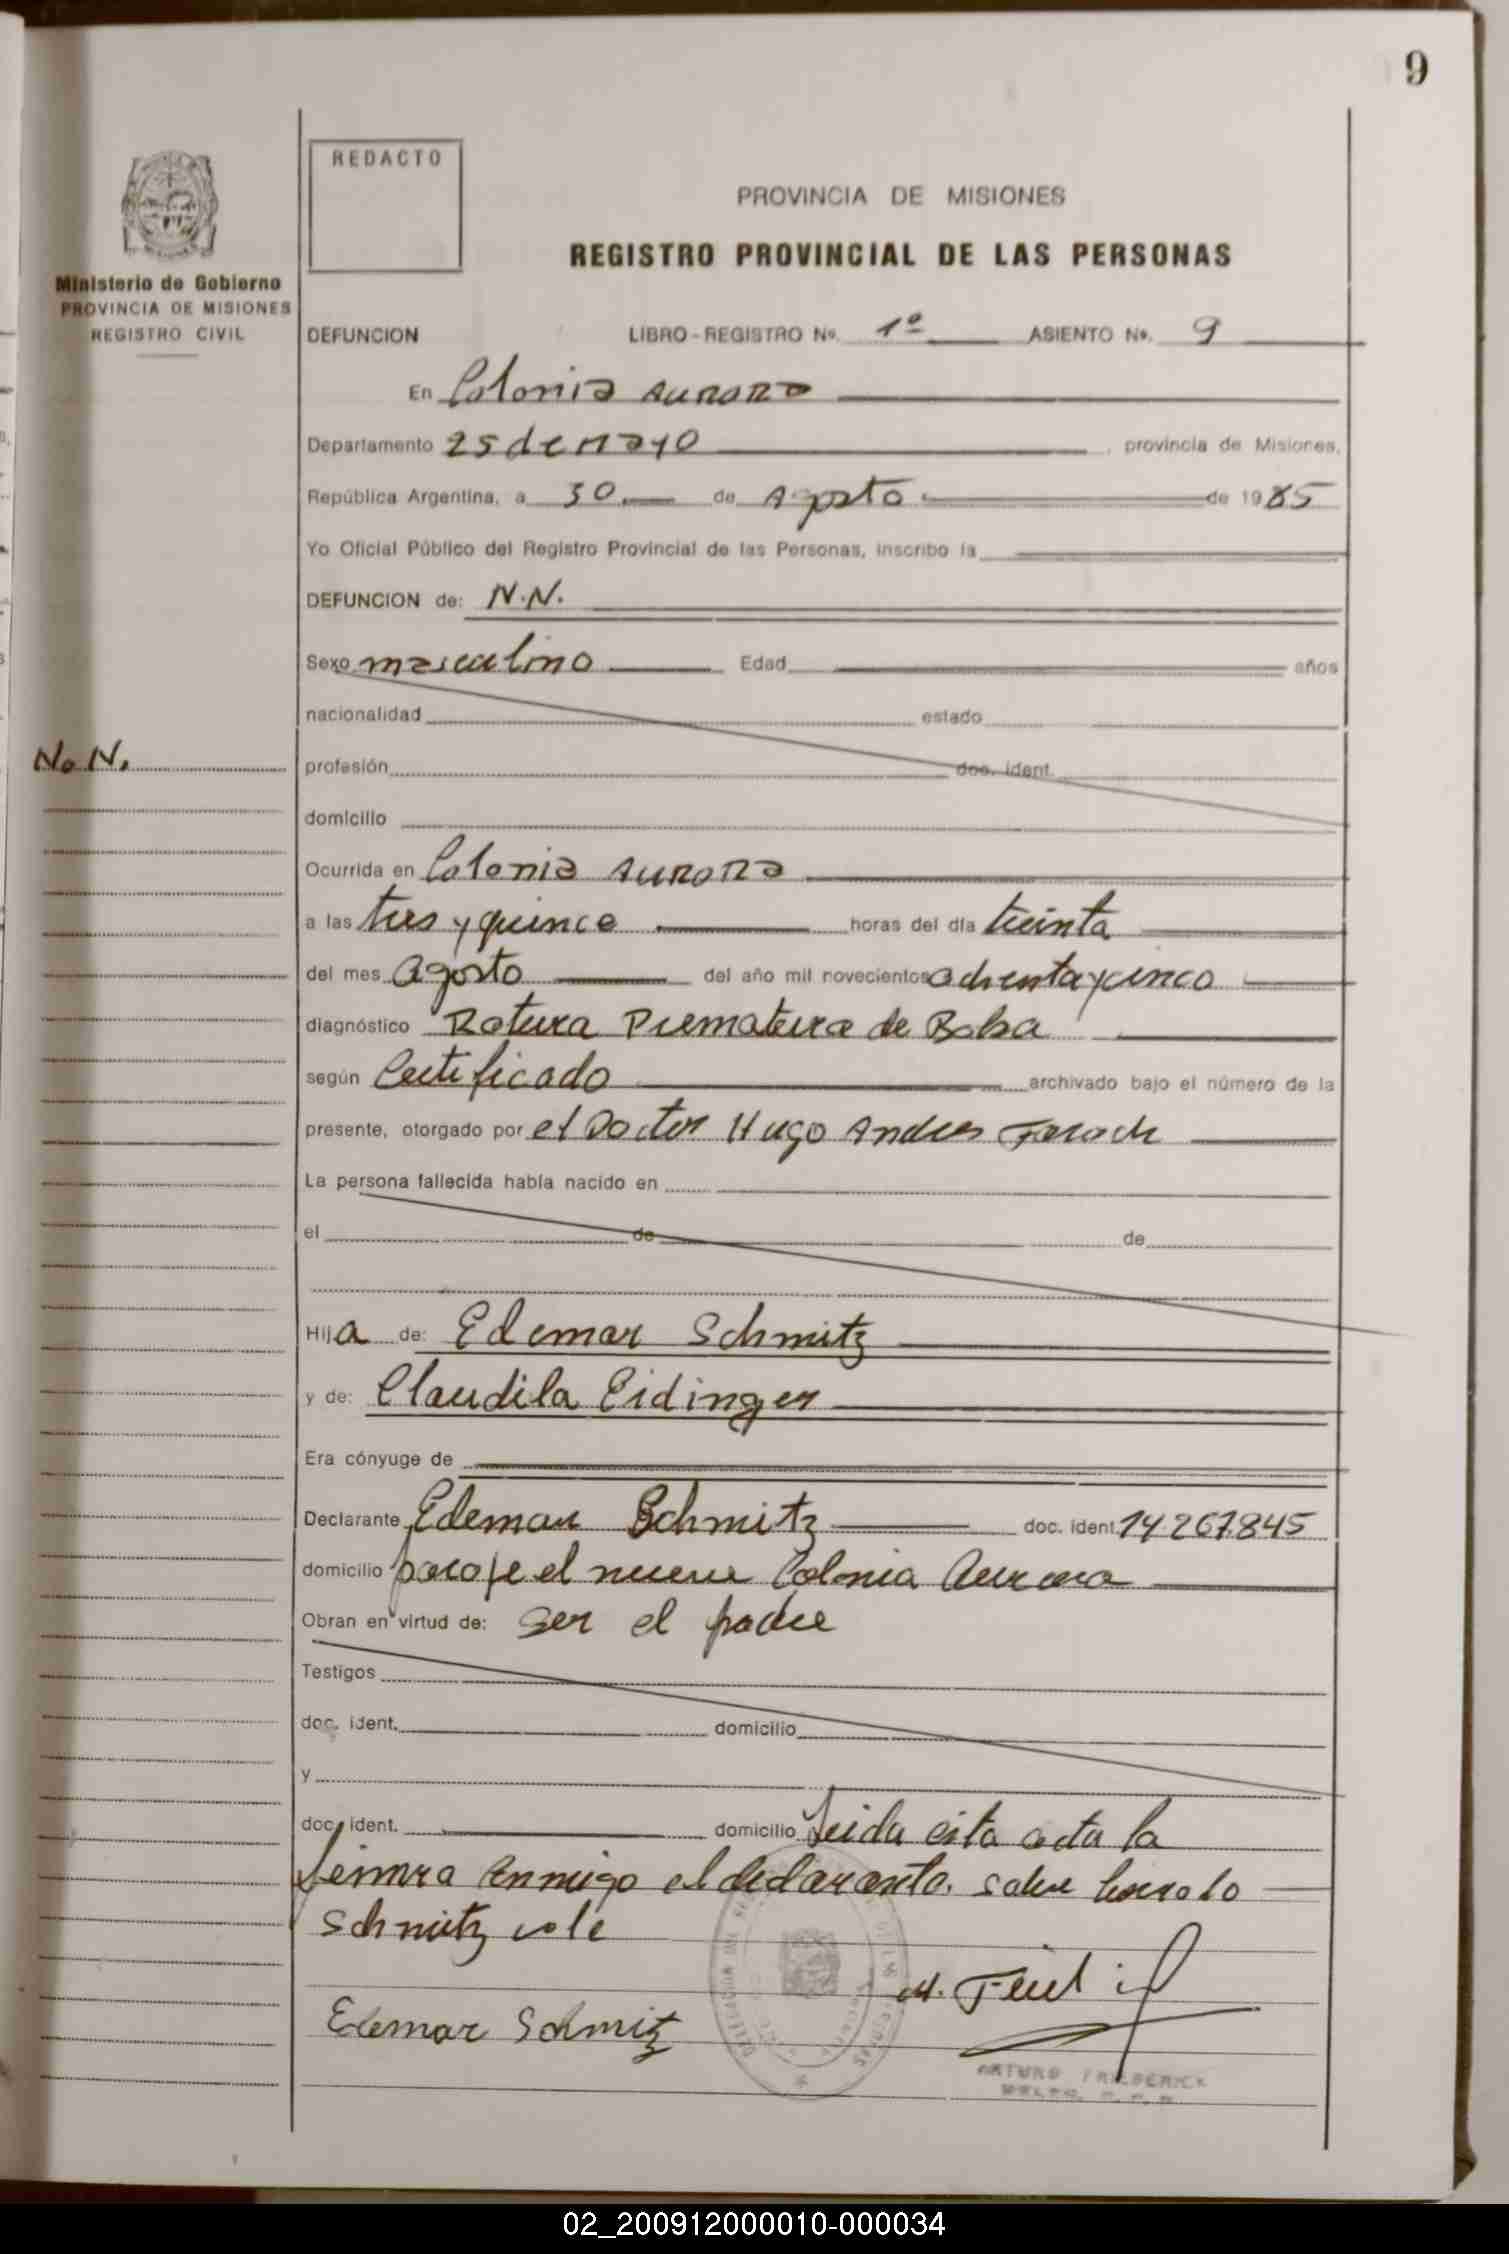 9
REDACTO
PROVINCIA DE MISIONES
REGISTRO PROVINCIAL DE LAS PERSONAS
Ministerio de Gobierno
PROVINCIA DE MISIONES
REGISTRO CIVIL
DEFUNCION LIBRO-REGISTRO No. 1º ASIENTO No. 9
En Colonia Aurora
Departamento 25 de Mayo, provincia de Misiones,
República Argentina, a 30 de Agosto de 1985
Yo Oficial Público del Registro Provincial de las Personas, inscribo la
DEFUNCION de: N.N.
Sexo masculino Edad años
nacionalidad estado
N.N.
profesión doc. ident.
domicilio
Ocurrida en Colonia Aurora
a las tres y quince horas del día treinta
del mes Agosto del año mil novecientos ochenta y cinco
diagnóstico Rotura Prematura de Bolsa
según Certificado archivado bajo el número de la
presente, otorgado por el Doctor Hugo Andres
La persona fallecida había nacido en
el de de
Hija de: Edemar Schmitz
y de: Claudila Eidinger
Era cónyuge de
Declarante Edemar Schmitz doc. ident. 14.267.845
domicilio paraje el nueve Colonia Aurora
Obran en virtud de: ser el padre
Testigos
doc. ident. domicilio
y
doc. ident. domicilio Leida esta acta la
firma conmigo el declarante. sobre borrado
Schmitz vale
Edemar Schmitz
ARTURO FREDERICK
02_200912000010-000034